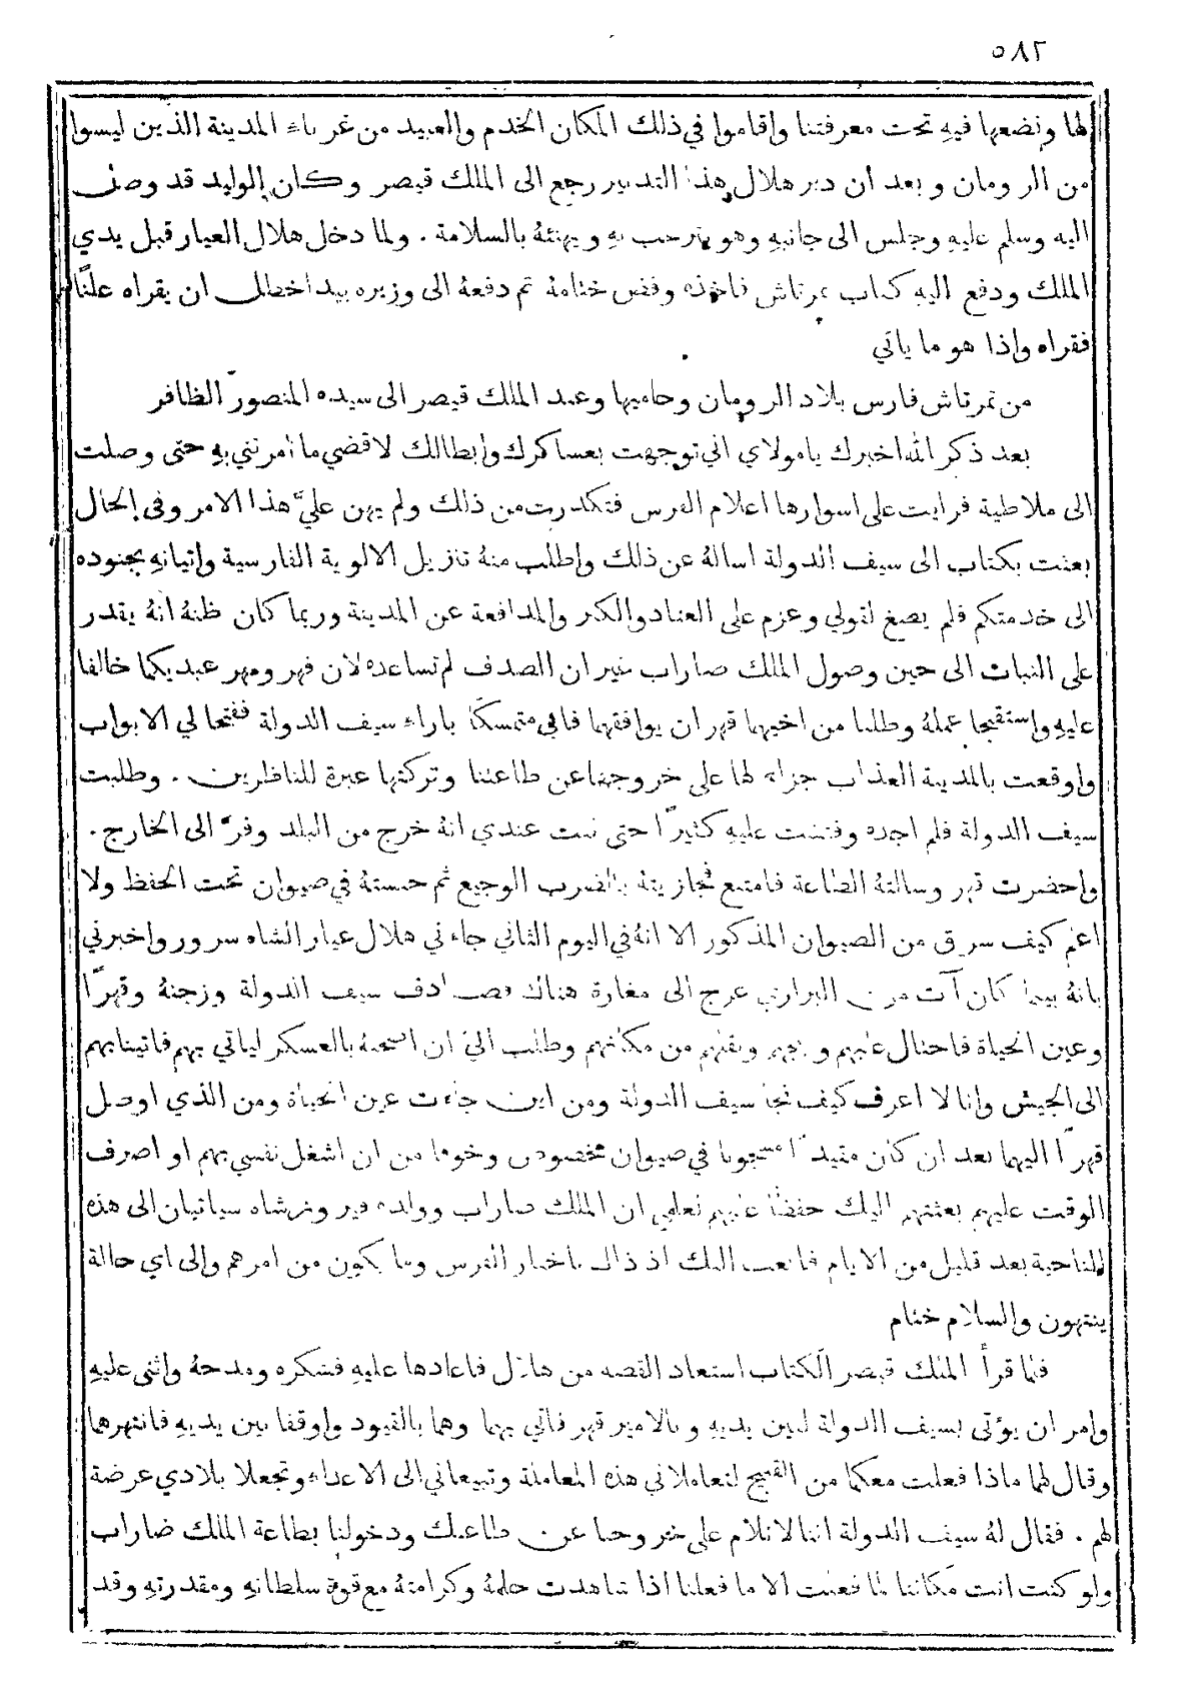 ٥٨٢
لها ونضعها فيهِ تحت معرفتنا واقاموا في ذلك المكان الخدم والعبيد من غرباء المدينة الذين ليسوا
من الرومان وبعد ان دبر هلال هذا التدبير رجع الى الملك قيصر وكان الوليد قد وصل
اليه وسلم عليهِ وجلس الى جانبهِ وهو يترحب بهِ ويهنئهُ بالسلامة . ولما دخل هلال العيار قبل يدي
الملك ودفع اليهِ كتاب تمرتاش فاخذه وفض ختامهُ ثم دفعهُ الى وزيره بيداخطل ان يقراه علنًا
فقراه واذا هو ما ياتي
من تمرتاش فارس بلاد الرومان وحاميها وعبد الملك قيصر الى سيده المنصور الظافر
بعد ذكر الله اخبرك يا مولاي اني توجهت بعساكرك وابطالك لاقضي ما امرتني بهِ حتى وصلت
الى ملاطية فرايت على اسوارها اعلام الفرس فتكدرت من ذلك ولم يهن عليَّ هذا الامر وفي الحال
بعثت بكتاب الى سيف الدولة اسالهُ عن ذلك واطلب منهُ تنزيل الالوية الفارسية واتيانهِ بجنوده
الى خدمتكم فلم يصغ لقولي وعزم على العناد والكر والمدافعة عن المدينة وربما كان ظنهُ انهُ يقدر
على الثبات الى حين وصول الملك ضاراب غير ان الصدف لم تساعده لان فهر ومهر عبديكما خالفا
عليهِ واستقبحا عملهُ وطلبا من اخيهما قهر ان يوافقهما فابى متمسكًا باراء سيف الدولة ففتحا لي الابواب
واوقعت بالمدينة العذاب جزاء لها على خروجها عن طاعتنا وتركتها عبرة للناظرين . وطلبت
سيف الدولة فلم اجده وفتشت عليهِ كثيرًا حتى ثبت عندي انهُ خرج من البلد وفرَّ الى الخارج .
واحضرت قهر وسالتهُ الطاعة فامتنع فجازيتهُ بالضرب الوجيع ثم حبستهُ في صيوان تحت الحفظ ولا
اعلم كيف سرق من الصيوان المذكور الا انهُ في اليوم الثاني جاءني هلال عيار الشاه سرور واخبرني
بانهُ بينما كان آت من البراري عرج الى مغارة هناك فصادف سيف الدولة وزجتهُ وقهرًا
وعين الحياة فاحتال عليهم وبنجهم ونقلهم من مكانهم وطلب اليَّ ان اصحبهُ بالعسكر لياتي بهم فاتينا بهم
الى الجيش وانا لا اعرف كيف نجا سيف الدولة ومن اين جاءت عين الحياة ومن الذي اوصل
قهرًا اليهما بعد ان كان مقيدًا مسجونا في صيوان مخصوص وخوفا من ان اشغل نفسي بهم او اصرف
الوقت عليهم بعثتهم اليك حفظًا عليهم لعلمي ان الملك ضاراب وولده فيروزشاه سياتيان الى هذه
الناحية بعد قليل من الايام فابعث اليك اذ ذاك باخبار الفرس وما يكون من امرهم والى اي حالة
ينتهون والسلام ختام
فلما قرأ الملك قيصر الكتاب استعاد القصه من هلال فاعادها عليهِ فشكره ومدحهُ واثنى عليهِ
وامر ان يؤتى بسيف الدولة لبين يديهِ وبالامير قهر فاتي بهما وهما بالقيود واوقفا بين يديهِ فانتهرهما
وقال لهما ماذا فعلت معكما من القبيح لتعاملاني هذه المعاملة وتبيعاني الى الاعداء وتجعلا بلادي عرضة
لهم . فقال لهُ سيف الدولة اننا لا نلام على خروجنا عن طاعتك ودخولنا بطاعة الملك ضاراب
ولو كنت انت مكاننا لما فعلت الا ما فعلنا اذا شاهدت حلمهُ وكرامتهُ مع قوة سلطانهِ ومقدرتهِ وقد